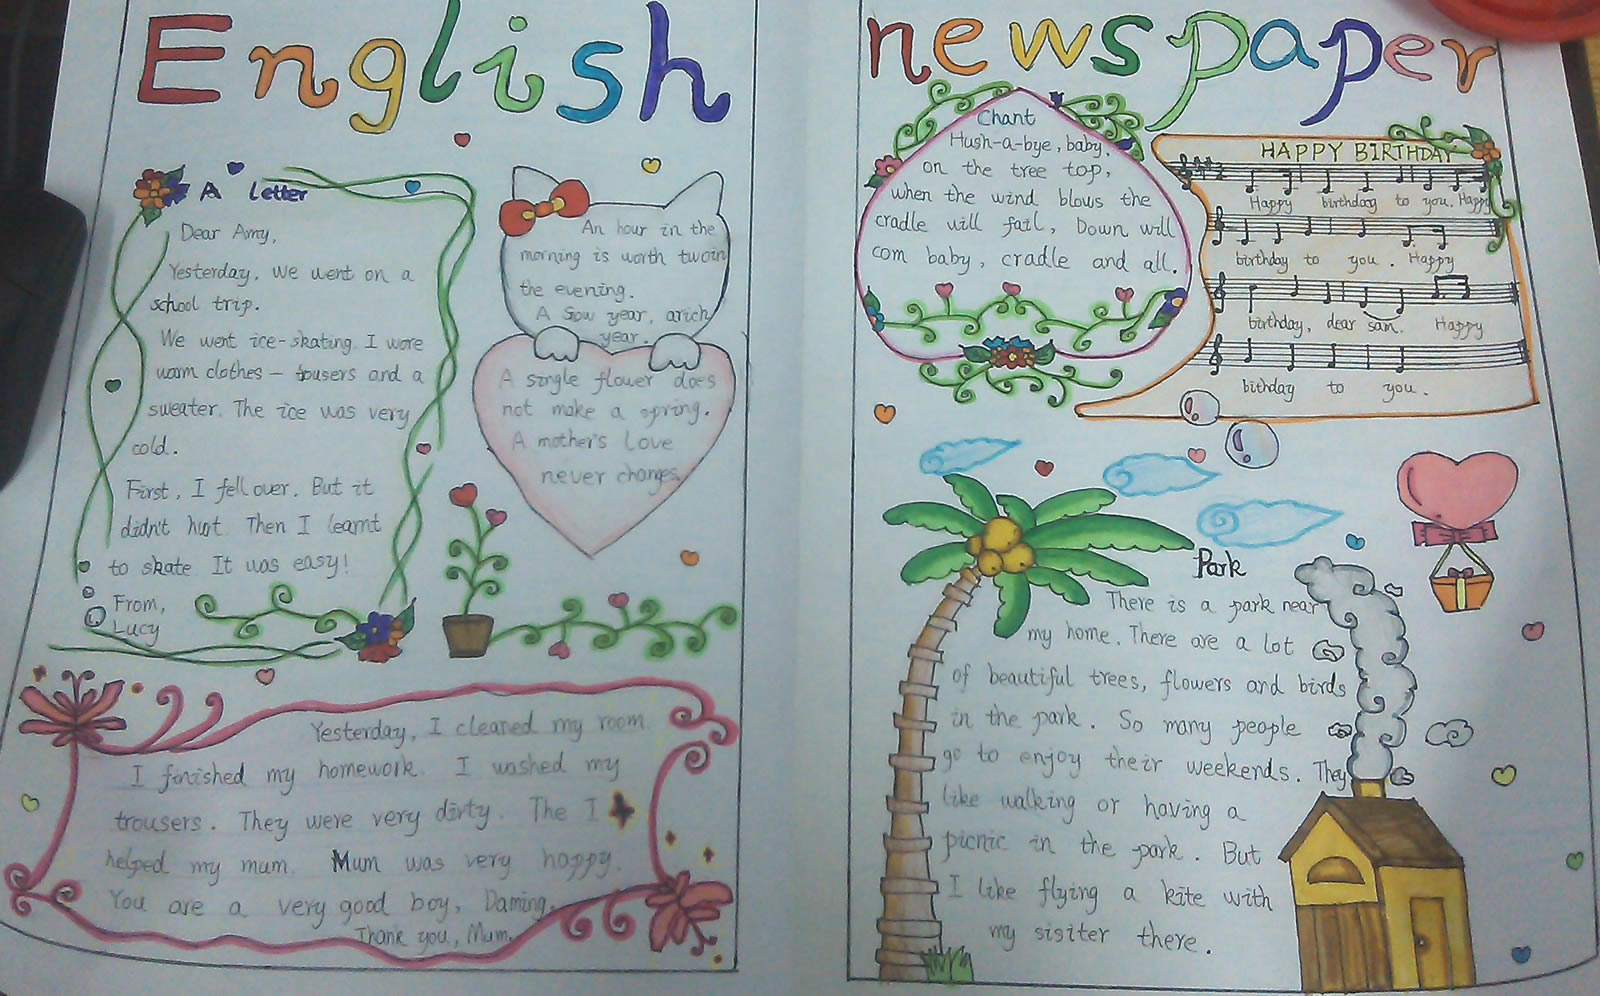 English newspaper
A Letter
Dear Amy,
Yesterday, we went on a
school trip.
We went ice-skating. I wore
warm clothes — tousers and a
sweater. The ice was very
cold.
First, I fell over. But it
didn't hurt. Then I learnt
to skate. It was easy!
From,
Lucy
An hour in the
morning is worth twoin
the evening.
A Sow year, arich
year.
A single flower does
not make a spring.
A mother's Love
never changes.
Yesterday, I cleaned my room.
I finished my homework. I washed my
trousers. They were very dirty. The I
helped my mum. Mum was very happy.
You are a very good boy, Daming.
Thank you, Mum.
Chant
Hush-a-bye, baby,
on the tree top,
when the wind blows the
cradle will fail, Down will
com baby, cradle and all.
HAPPY BIRTHDAY
Happy birthdang to you. Happy
birthday to you. Happy
birthday, dear sam. Happy
bithday to you.
Park
There is a park near
my home. There are a lot
of beautiful trees, flowers and birds
in the park. So many people
go to enjoy their weekends. They
like walking or having a
picnic in the park. But
I like flying a kite with
my sisiter there.